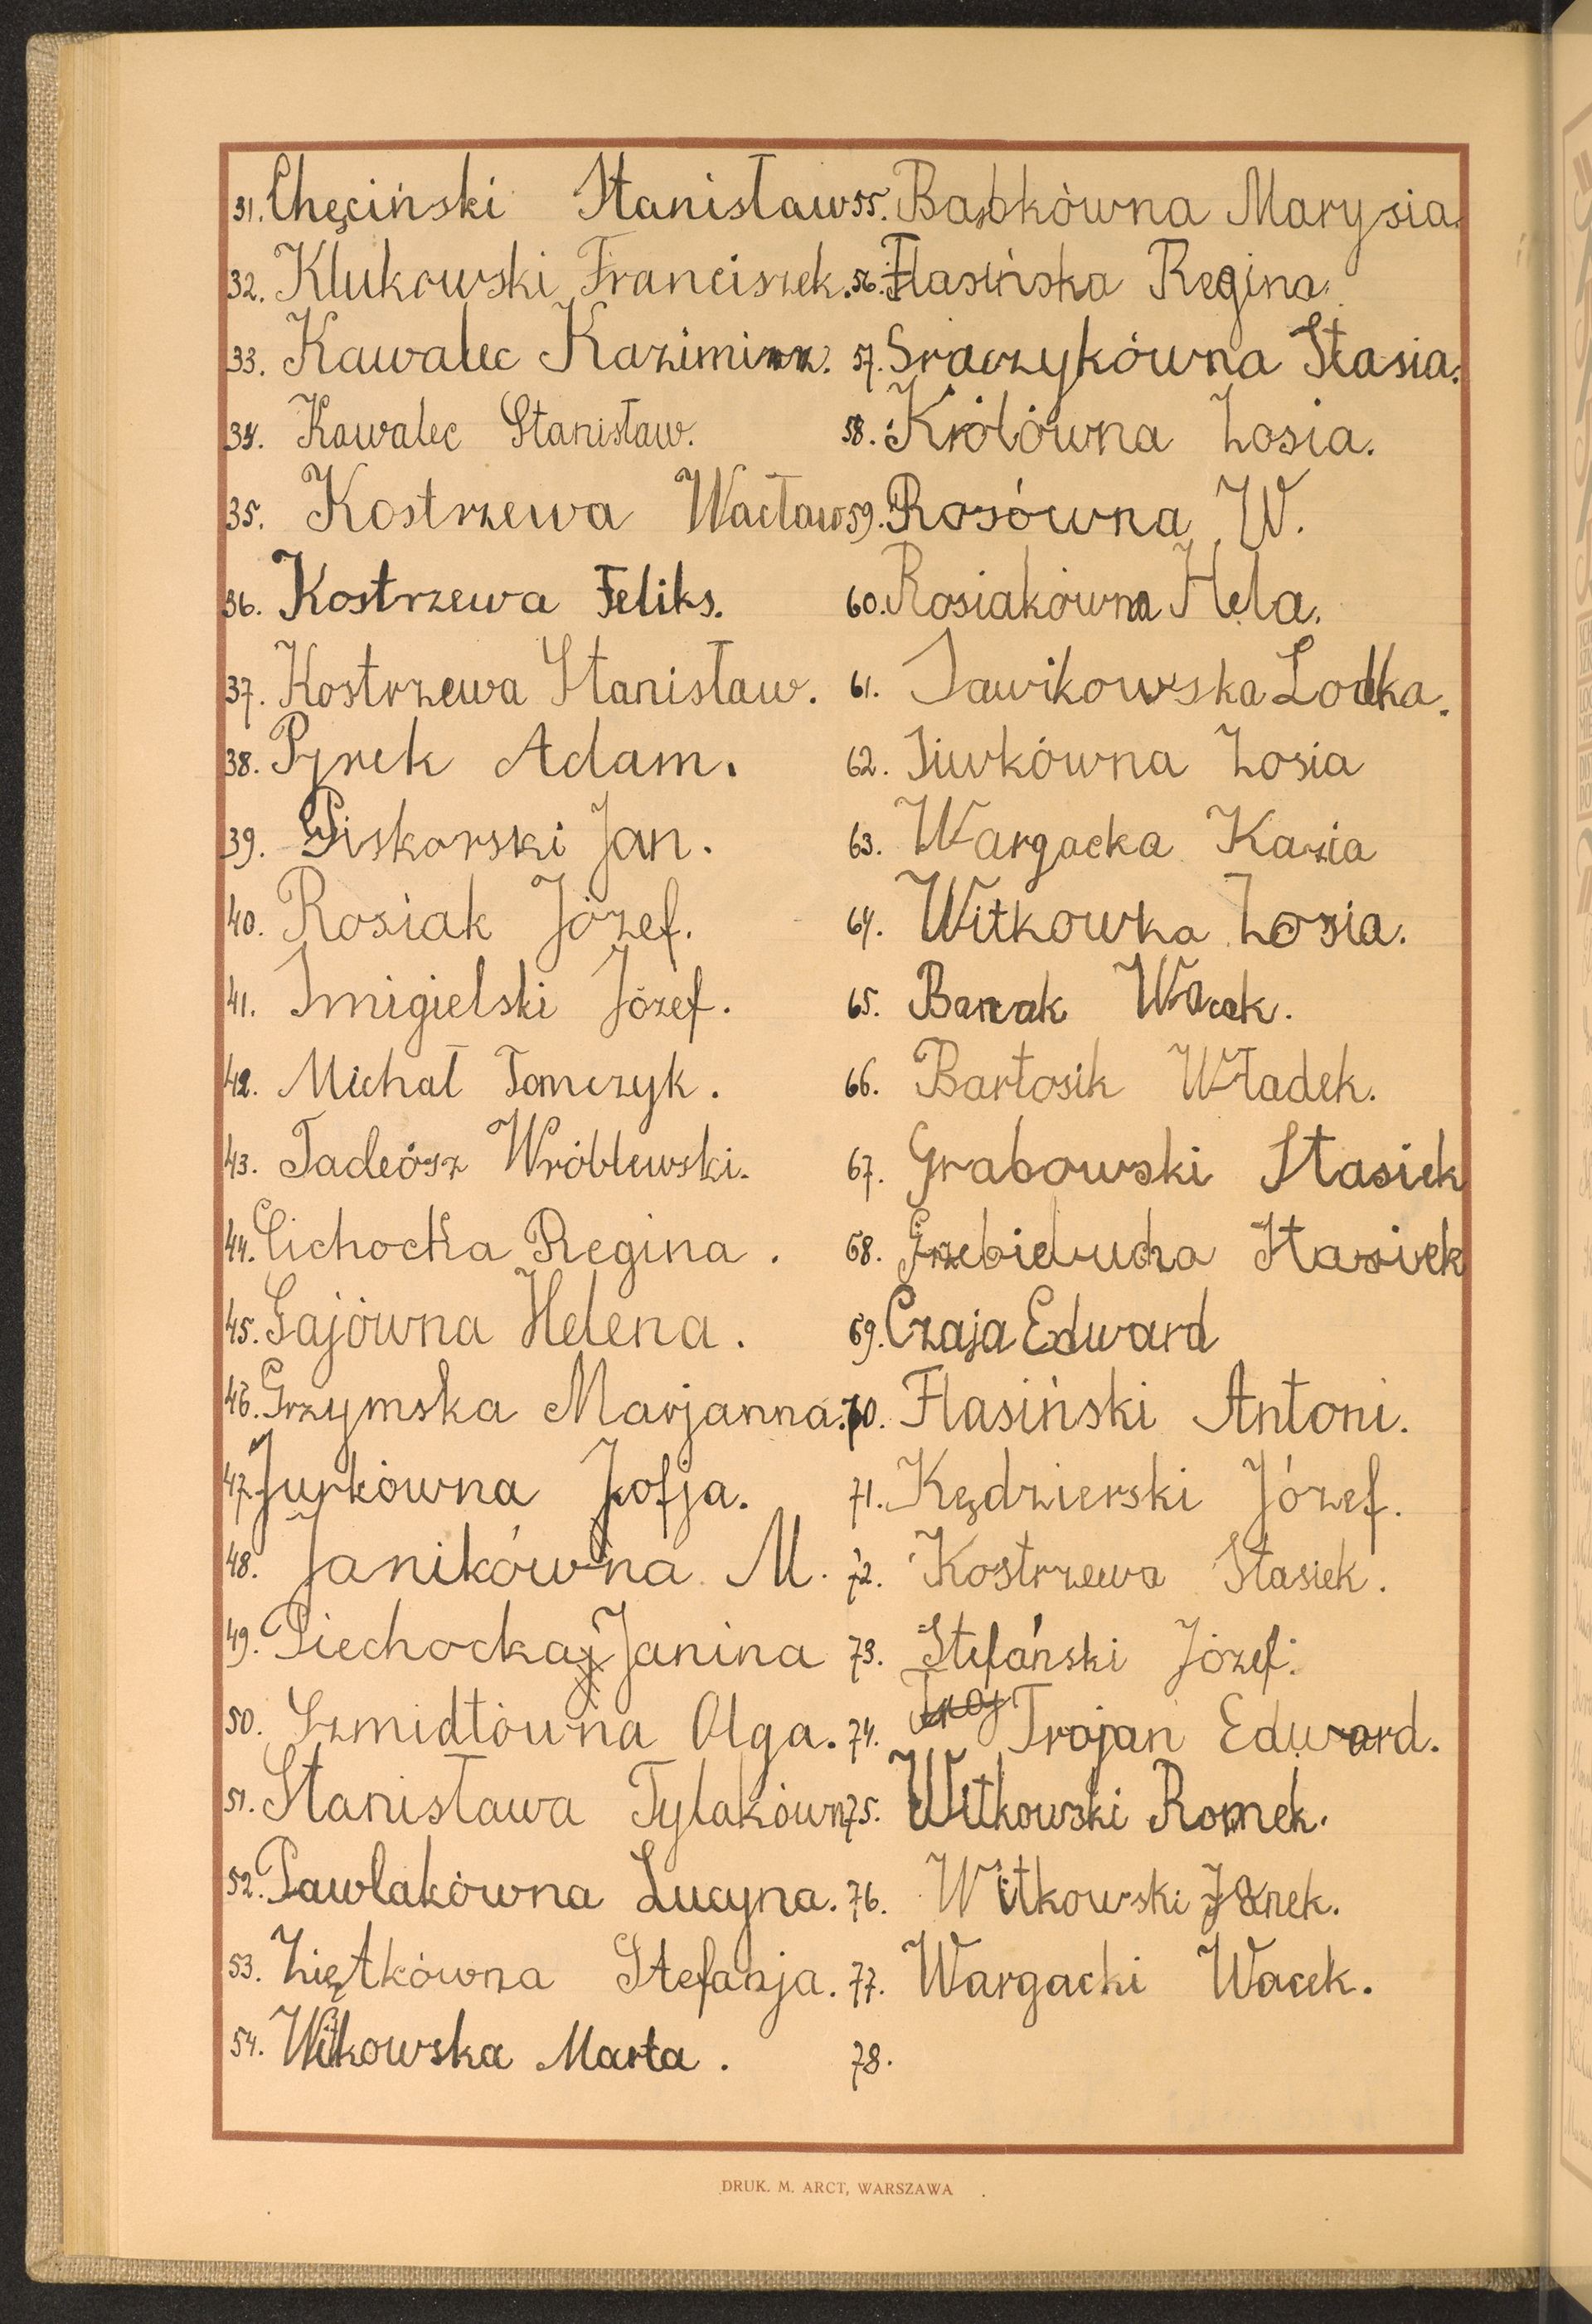 31. Chęciński Stanisław
32. Klukowski Franciszek.
33. Kawalec Kazimierz.
34. Kawalec Stanisław.
35. Kostrzewa Wacław
36. Kostrzewa Feliks.
37. Kostrzewa Stanisław.
38. Pyrek Adam.
39. Piskorski Jan.
40. Rosiak Józef.
41. Smigielski Józef.
42. Michał Tomczyk.
43. Tadeósz Wróblewski.
44. Cichocka Regina.
45. Gajówna Helena.
46. Grzymska Marjanna.
47. Jurkówna Zofja.
48. Janikówna M.
49. Piechocka Janina
50. Szmidtówna Olga.
51. Stanisława Tylakówn
52. Pawlakówna Lucyna.
53. Ziętkówna Stefanja.
54. Witkowska Marta.
55. Bąbkówna Marysia.
56. Flasińska Regina.
57. Sraczykówna Stasia.
58. Królówna Zosia.
59. Rosówna W.
60. Rosiakówna Hela.
61. Sawikowska Lodka.
62. Siwkówna Zosia
63. Wargacka Kazia
64. Witkowka Zosia.
65. Banak Wacek.
66. Bartosik Władek.
67. Grabowski Stasiek
68. Grzebielucha Stasiek
69. Czaja Edward
70. Flasiński Antoni.
71. Kędzierski Józef.
72. Kostrzewa Stasiek.
73. Stefański Józef.
74. Troj Trojan Edward.
75. Witkowski Romek.
76. Witkowski Janek.
77. Wargacki Wacek.
78.
DRUK. M. ARCT, WARSZAWA